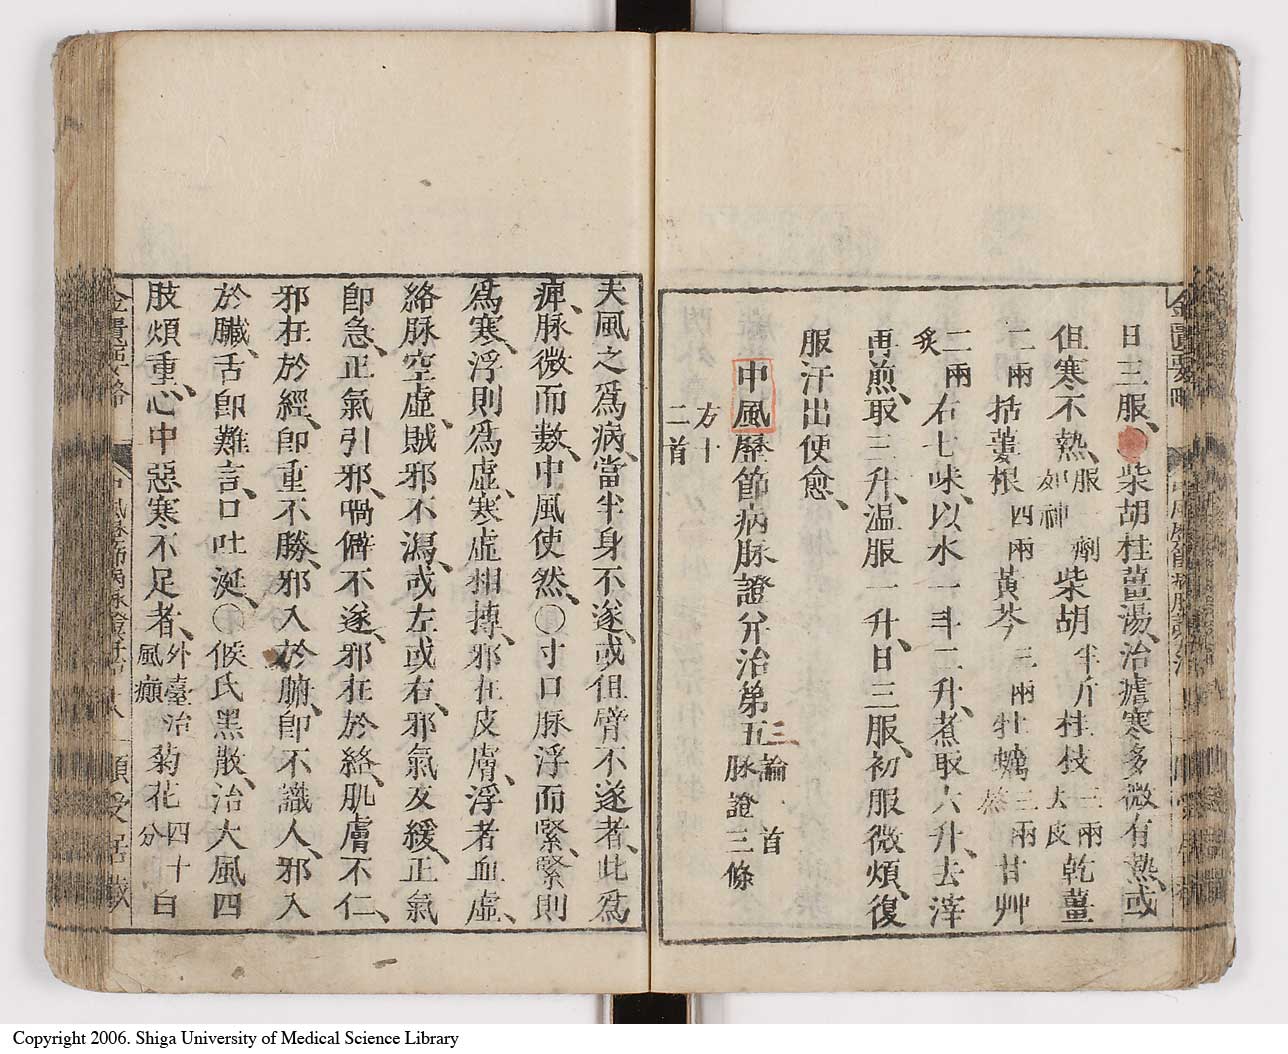 日三服、柴胡桂薑湯、治瘧寒多微有熱、或
但寒不熱、服一劑如神 柴胡半斤 桂枝三兩去皮 乾薑
二兩 括蔞根四兩 黃芩三兩 牡蠣三兩熬 甘艸
二兩炙 右七味、以水一斗二升、煮取六升、去滓
再煎、取三升、溫服一升、日三服、初服微煩、復
服汗出便愈、
中風歷節病脉證并治第五 論三首 脉證三條
方十二首
夫風之爲病、當半身不遂、或但臂不遂者、此爲
痺、脉微而數、中風使然、○寸口脉浮而緊、緊則
爲寒、浮則爲虛、寒虛相摶、邪在皮膚、浮者血虛、
絡脉空虛、賊邪不瀉、或左或右、邪氣反緩、正氣
卽急、正氣引邪、喎僻不遂、邪在於絡、肌膚不仁、
邪在於經、卽重不勝、邪入於腑、卽不識人、邪入
於臟、舌卽難言、口吐涎、○侯氏黑散、治大風四
肢煩重、心中惡寒不足者、外臺治風癲 菊花四十分 白
金匱要略
中風歷節病脉證并治
Copyright 2006. Shiga University of Medical Science Library